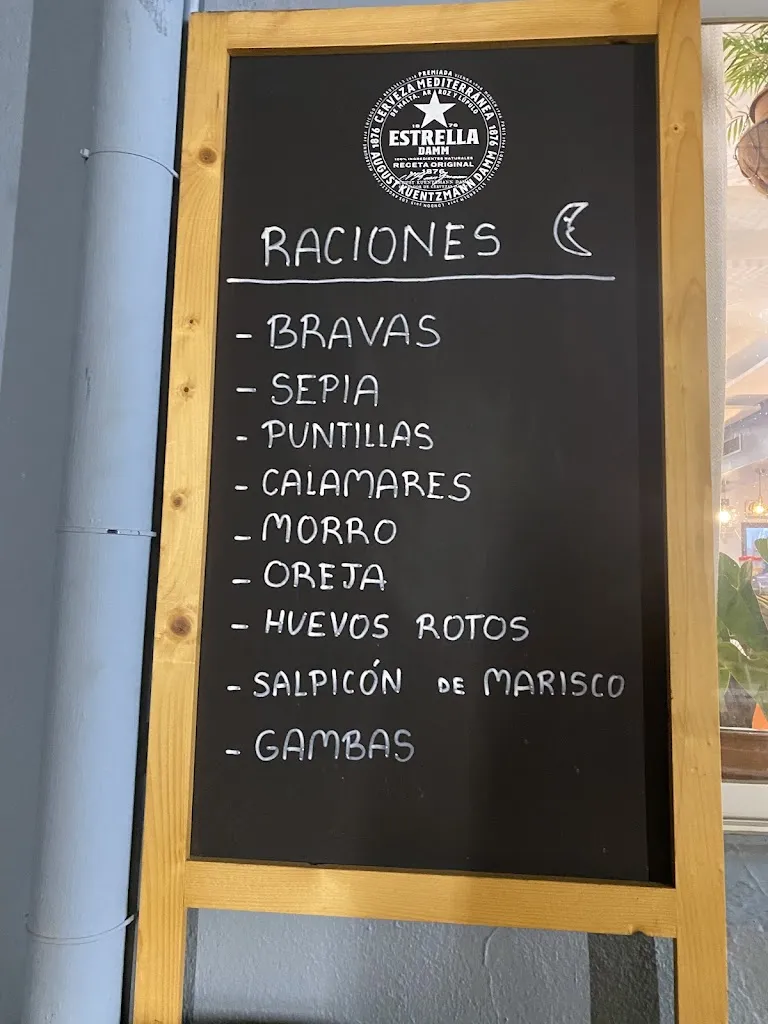 PREMIADA
CERVEZA MEDITERRÁNEA
DE MALTA, ARROZ Y LÚPULO
1876
1876
1876
ESTRELLA
DAMM
100% INGREDIENTES NATURALES
RECETA ORIGINAL
1876
AUGUST KUENTZMANN DAMM
RACIONES
- BRAVAS
- SEPIA
- PUNTILLAS
- CALAMARES
- MORRO
- OREJA
- HUEVOS ROTOS
- SALPICÓN DE MARISCO
- GAMBAS